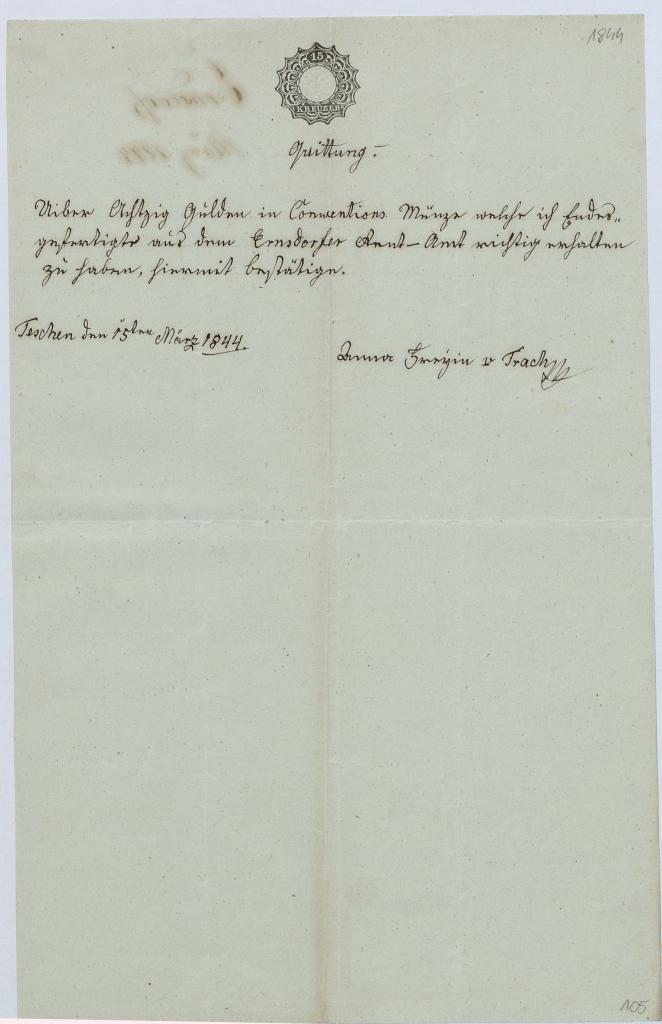 1844
15
KREUZER
Quittung.
Uiber Achtzig Gulden in Conventions Münze welche ich Endes-
gefertigte aus dem Ernsdorfer Rent-Amt richtig erhalten
zu haben, hiermit bestätige.
Teschen den 15ten März 1844.
Anna Freyin v Trach
105